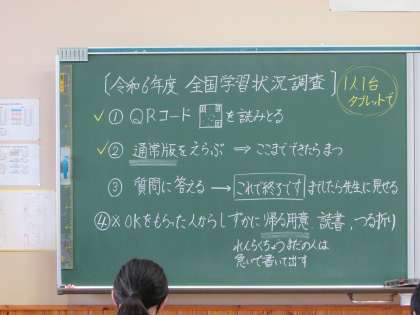 〔令和6年度 全国学習状況調査〕
1人1台
タブレットで
✓① QRコード を読みとる
✓② 通常版をえらぶ ⇒ ここまでできたらまつ
③ 質問に答える → これで終りです までしたら先生に見せる
④※OKをもらった人からしずかに帰る用意、読書、つる折り
れんらくちょうまだの人は
急いで書いて出す